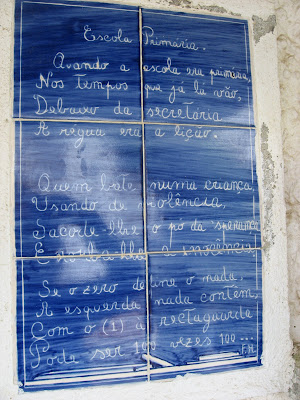 Escola Primária.
Quando a escola era primária,
Nos tempos que já la vão,
Debaixo da secretária
A régua era a lição.
Quem bate numa criança,
Usando de violência,
Sacode-lhe o pó da esperança
E rouba-lhe a inocência.
Se o zero de une o nada,
À esquerda nada contém,
Com o (1) à rectaguarda
Pode ser 100 vezes 100...
F.H.